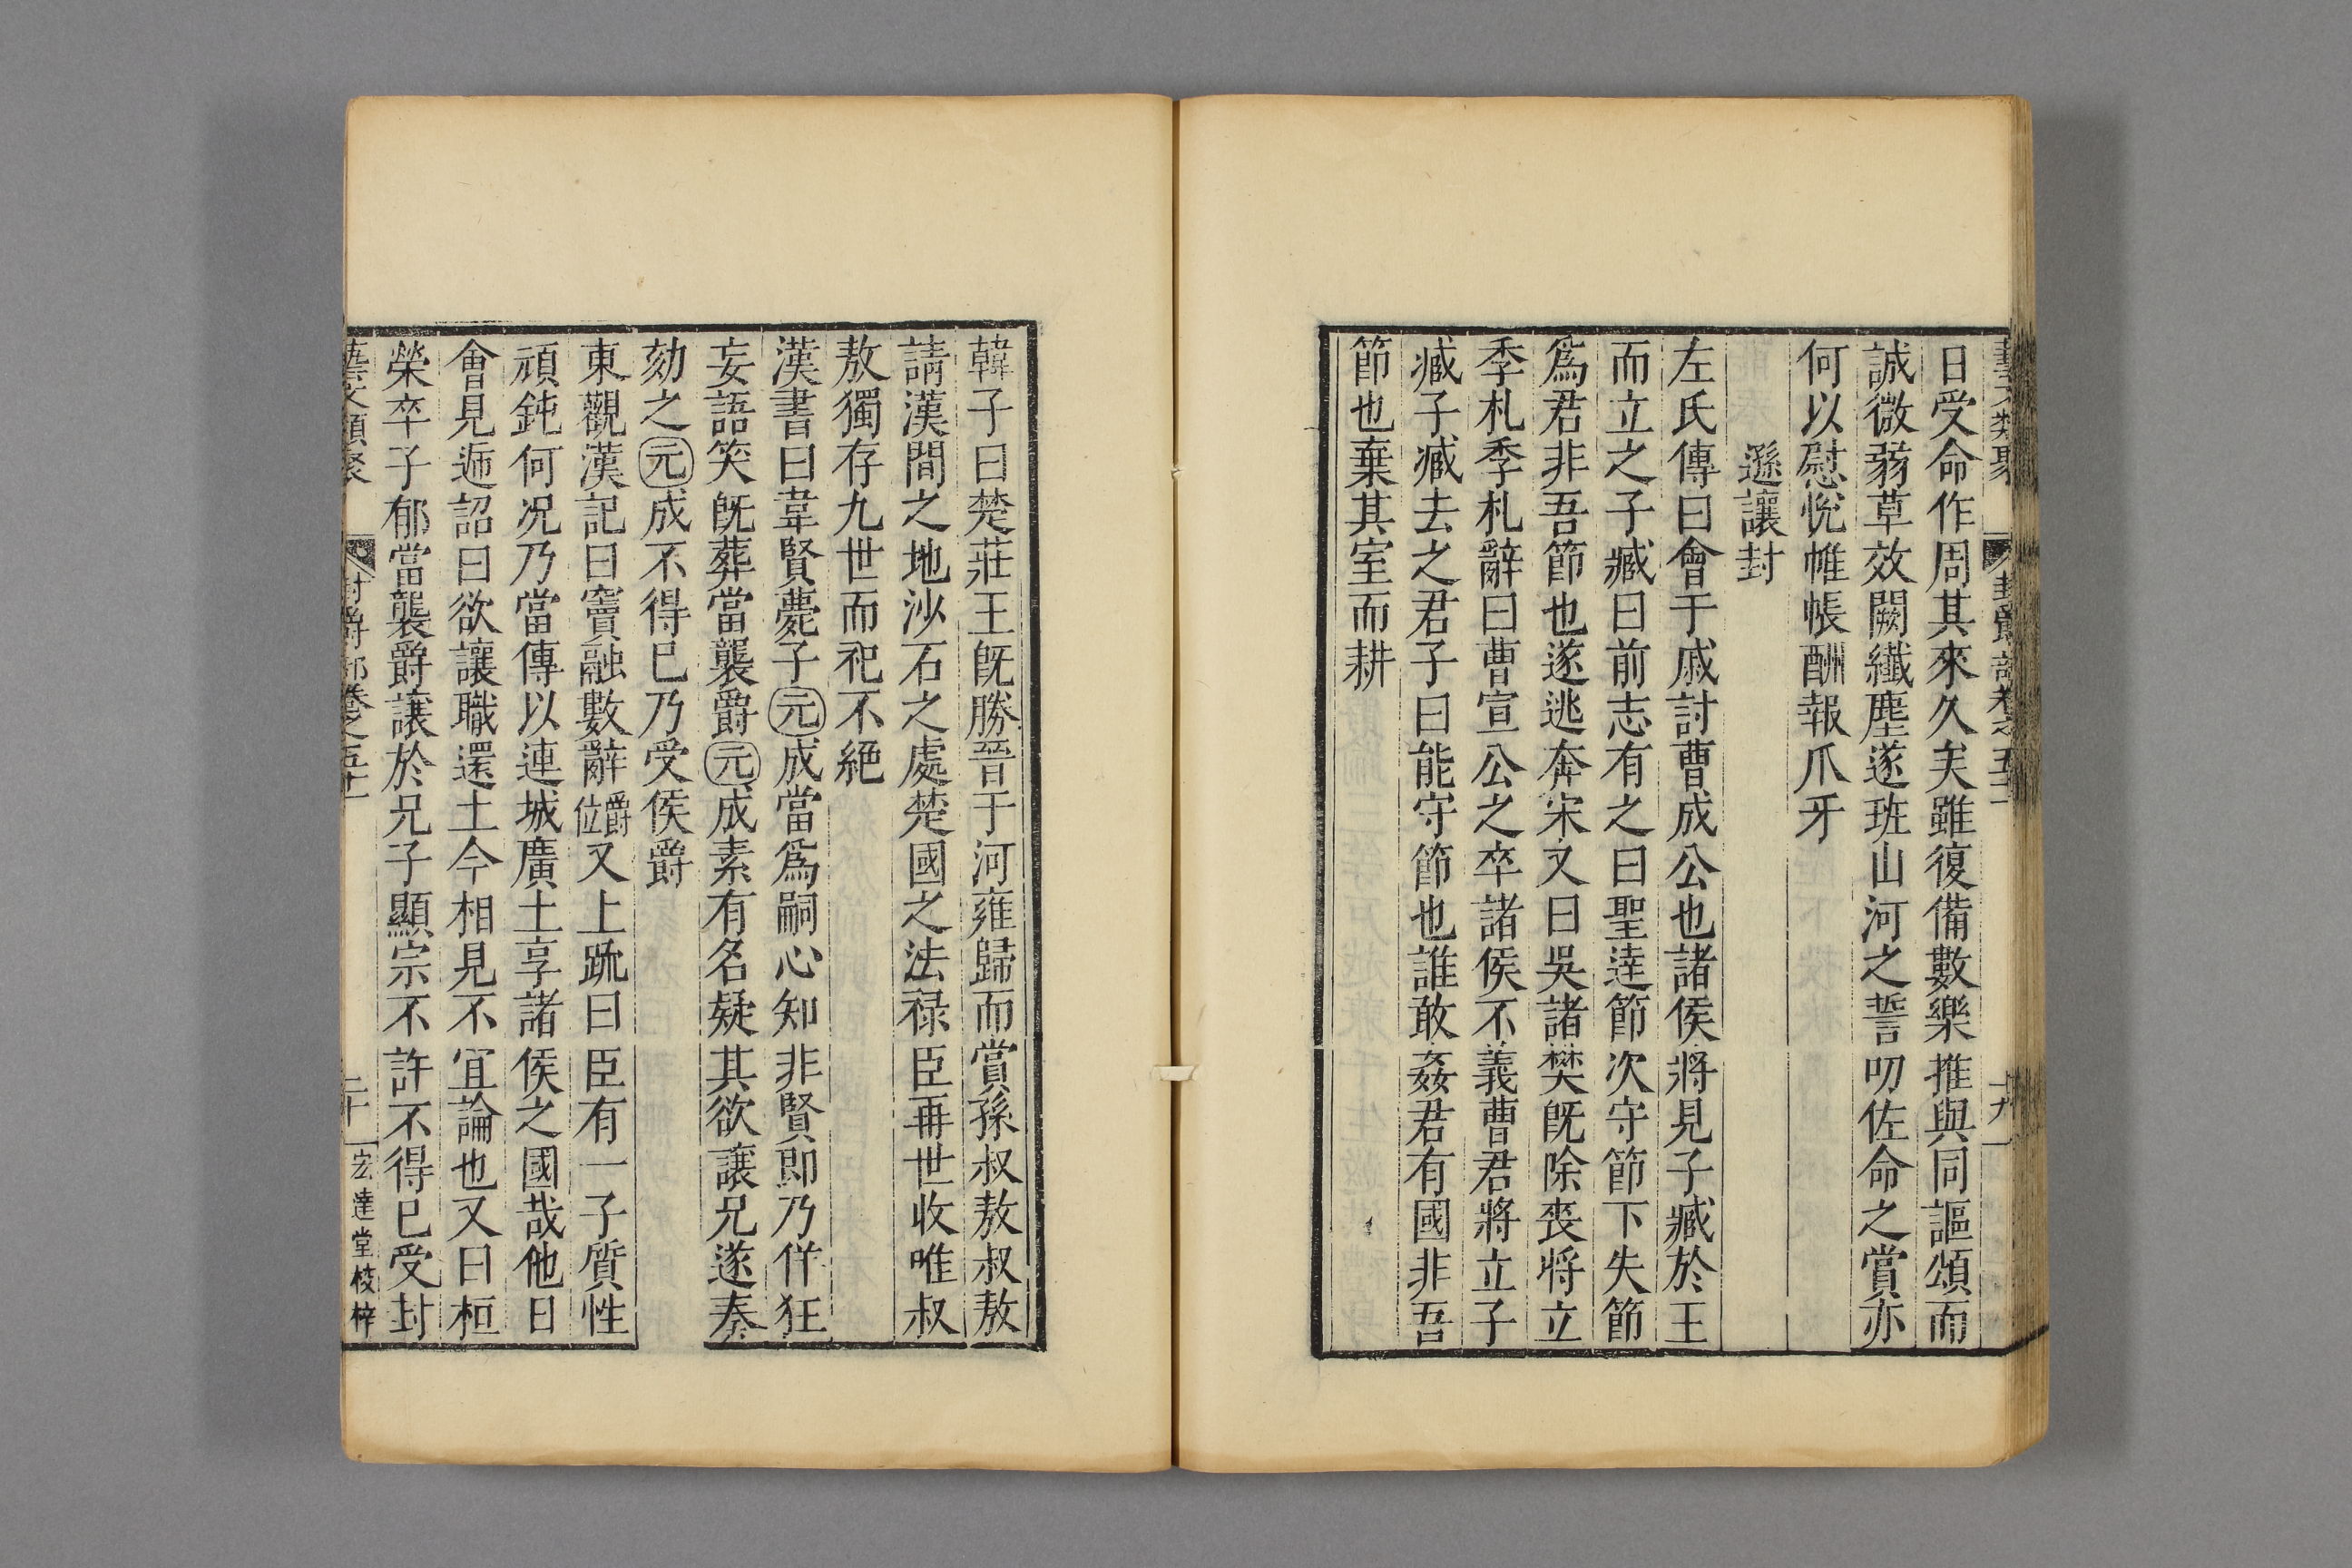 日受命作周其來久矣雖復備數樂推與同謳頌而
誠微蒭草效闕纖塵遂班山河之誓叨佐命之賞亦
何以慰悅帷帳酬報爪牙
遜讓封
左氏傳曰會于戚討曹成公也諸侯將見子臧於王
而立之子臧曰前志有之曰聖達節次守節下失節
爲君非吾節也遂逃奔宋又曰吳諸樊旣除喪將立
季札季札辭曰曹宣公之卒諸侯不義曹君將立子
臧子臧去之君子曰能守節也誰敢姦君有國非吾
節也棄其室而耕
韓子曰楚莊王旣勝晉于河雍歸而賞孫叔敖叔敖
請漢間之地沙石之處楚國之法祿臣再世收唯叔
敖獨存九世而祀不絕
漢書曰韋賢薨子元成當爲嗣心知非賢卽乃佯狂
妄語笑旣葬當襲爵元成素有名疑其欲讓兄遂奏
劾之元成不得已乃受侯爵
東觀漢記曰竇融數辭爵位又上疏曰臣有一子質性
頑鈍何况乃當傳以連城廣土享諸侯之國哉他日
會見迊詔曰欲讓職還土今相見不宜論也又曰桓
榮卒子郁當襲爵讓於兄子顯宗不許不得已受封
藝文類聚 封爵部卷之五十一 二十 宏達堂校梓